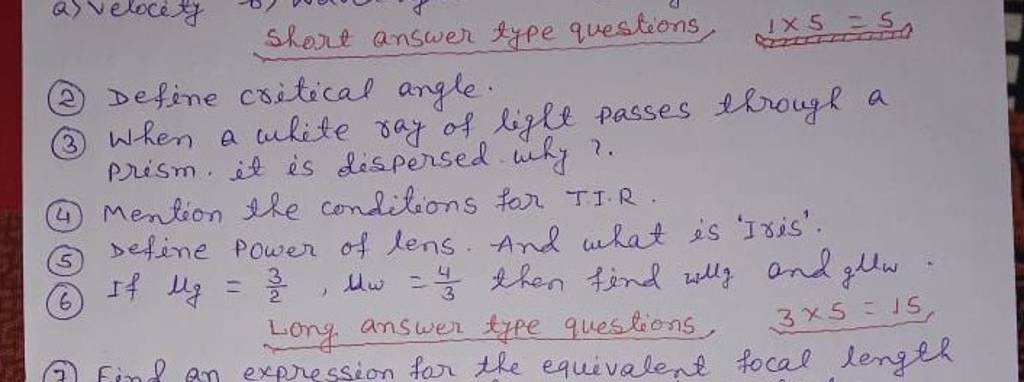 a) Velocity b)
Short answer type questions, 1 × 5 = 5,
② Define critical angle.
③ When a white ray of light passes through a
prism. it is dispersed. why ?.
④ Mention the conditions for T.I.R.
⑤ Define Power of lens. And what is 'Iris'.
⑥ If μg = 3/2, μw = 4/3 then find wμg and gμw.
Long answer type questions, 3 × 5 = 15,
⑦ Find an expression for the equivalent focal length